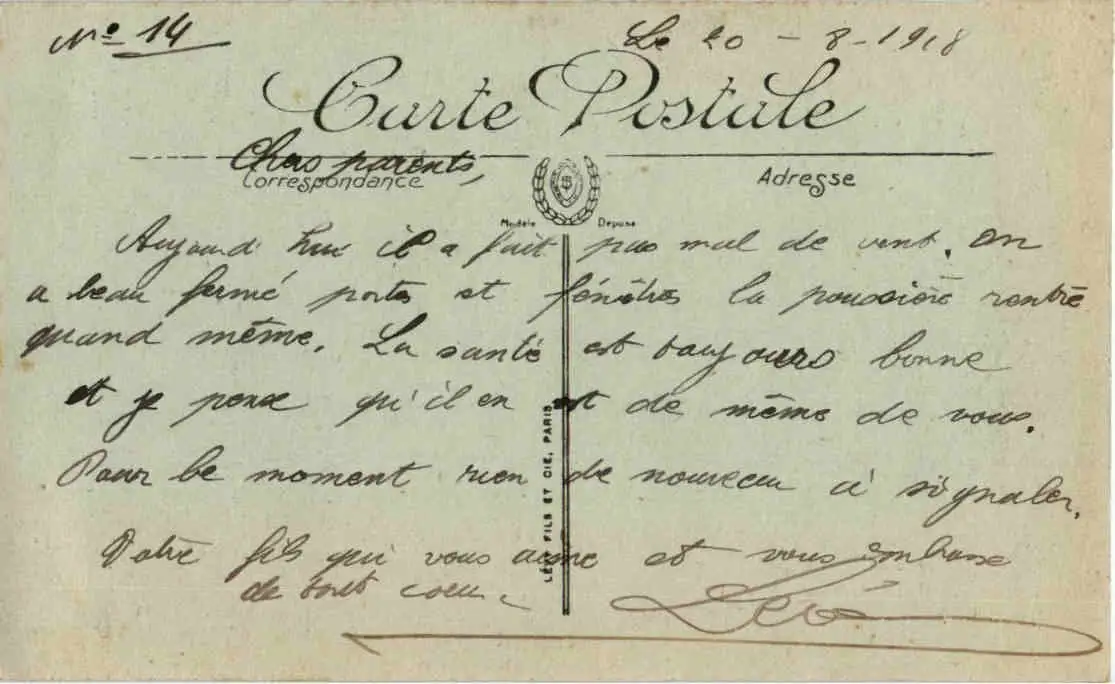 Nº 14
Le 20 - 8 - 1918
Carte Postale
Chers parents,
Correspondance
Adresse
Modèle Déposé
Aujourd'hui il a fait pas mal de vent. On
a beau fermé portes et fenêtres la poussière rentre
quand même. La santé est toujours bonne
et je pense qu'il en est de même de vous.
Pour le moment rien de nouveau à signaler.
Votre fils qui vous aime et vous embrasse
de tout cœur.
Léo
LÉVY FILS ET CIE, PARIS